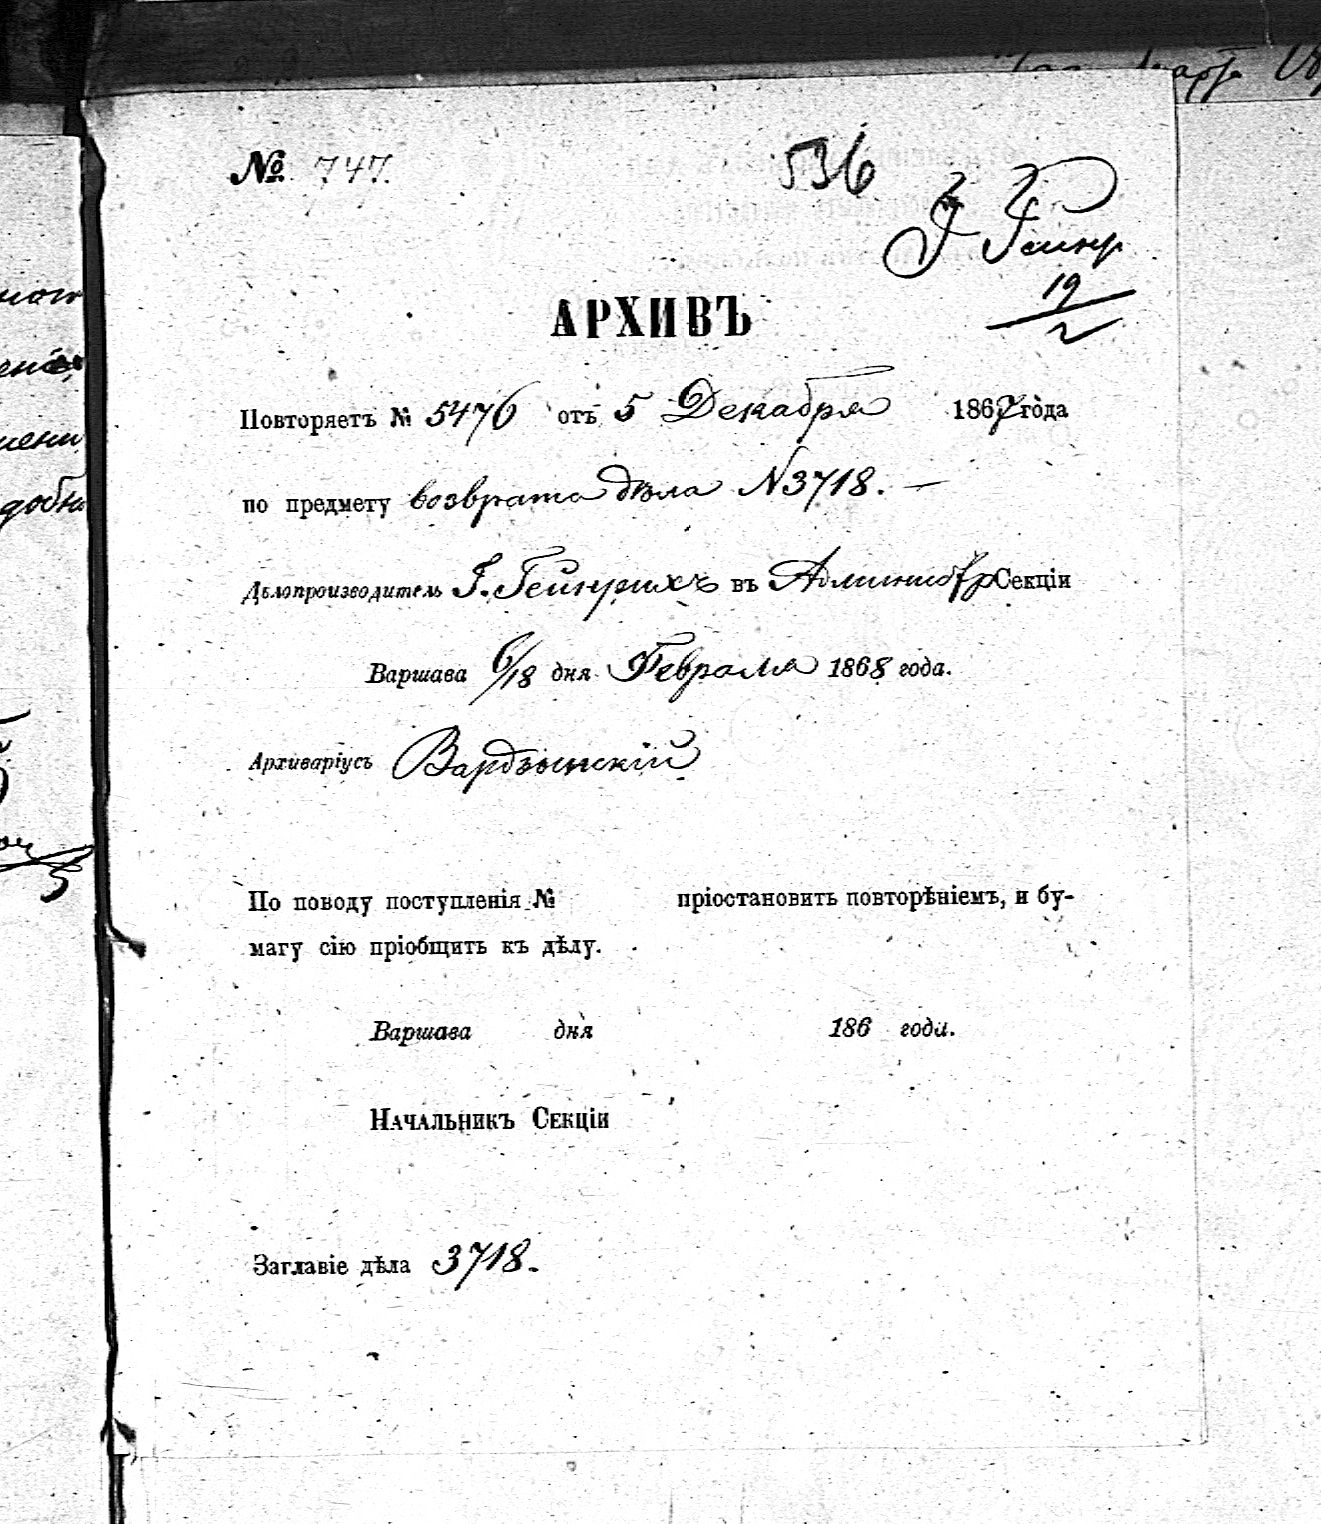 № 747.
536
Г Гейнр
19
2
АРХИВЪ
Повторяетъ № 5476 отъ 5 Декабря 1867 года
по предмету возврата дѣла N 3718. —
Дѣлопроизводитель Г. Гейнрихъ въ Администр Секціи
Варшава 6/18 дня Февраля 1868 года.
Архиваріусъ Вардзынскій
По поводу поступленія № пріостановить повторѣніемъ, и бу-
магу сію пріобщить къ дѣлу.
Варшава дня 186 года.
Начальникъ Секціи
Заглавіе дѣла 3718.